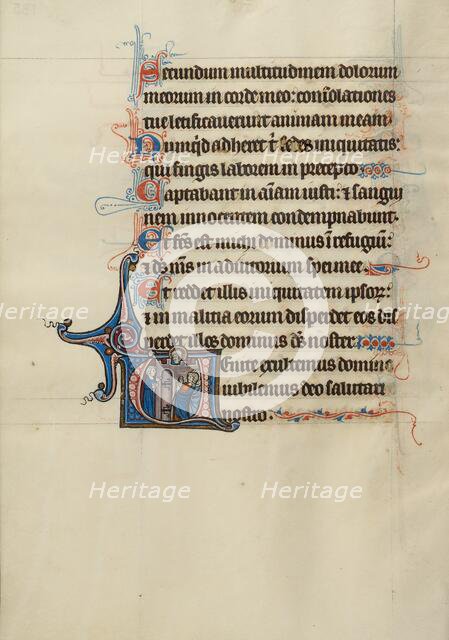 Secundum multitudinem dolorum
meorum in corde meo: consolationes
tue letificauerunt animam meam.
Numquid adheret t sedes iniquitatis:
qui fingis laborem in precepto.
Captabunt in aiam iusti: & sangui
nem innocentem condempnabunt.
Et fcs est michi dominus in refugiu:
& ds ms in adiutorium spei mee.
Et redd et illis iniquitatem ipsor:
& in malitia eorum disperdet eos dis
perdet illos dominus ds noster.
Uenite exultemus domino
iubilemus deo salutari
nostro.
Heritage Heritage
Heritage Heritage
Heritage Heritage